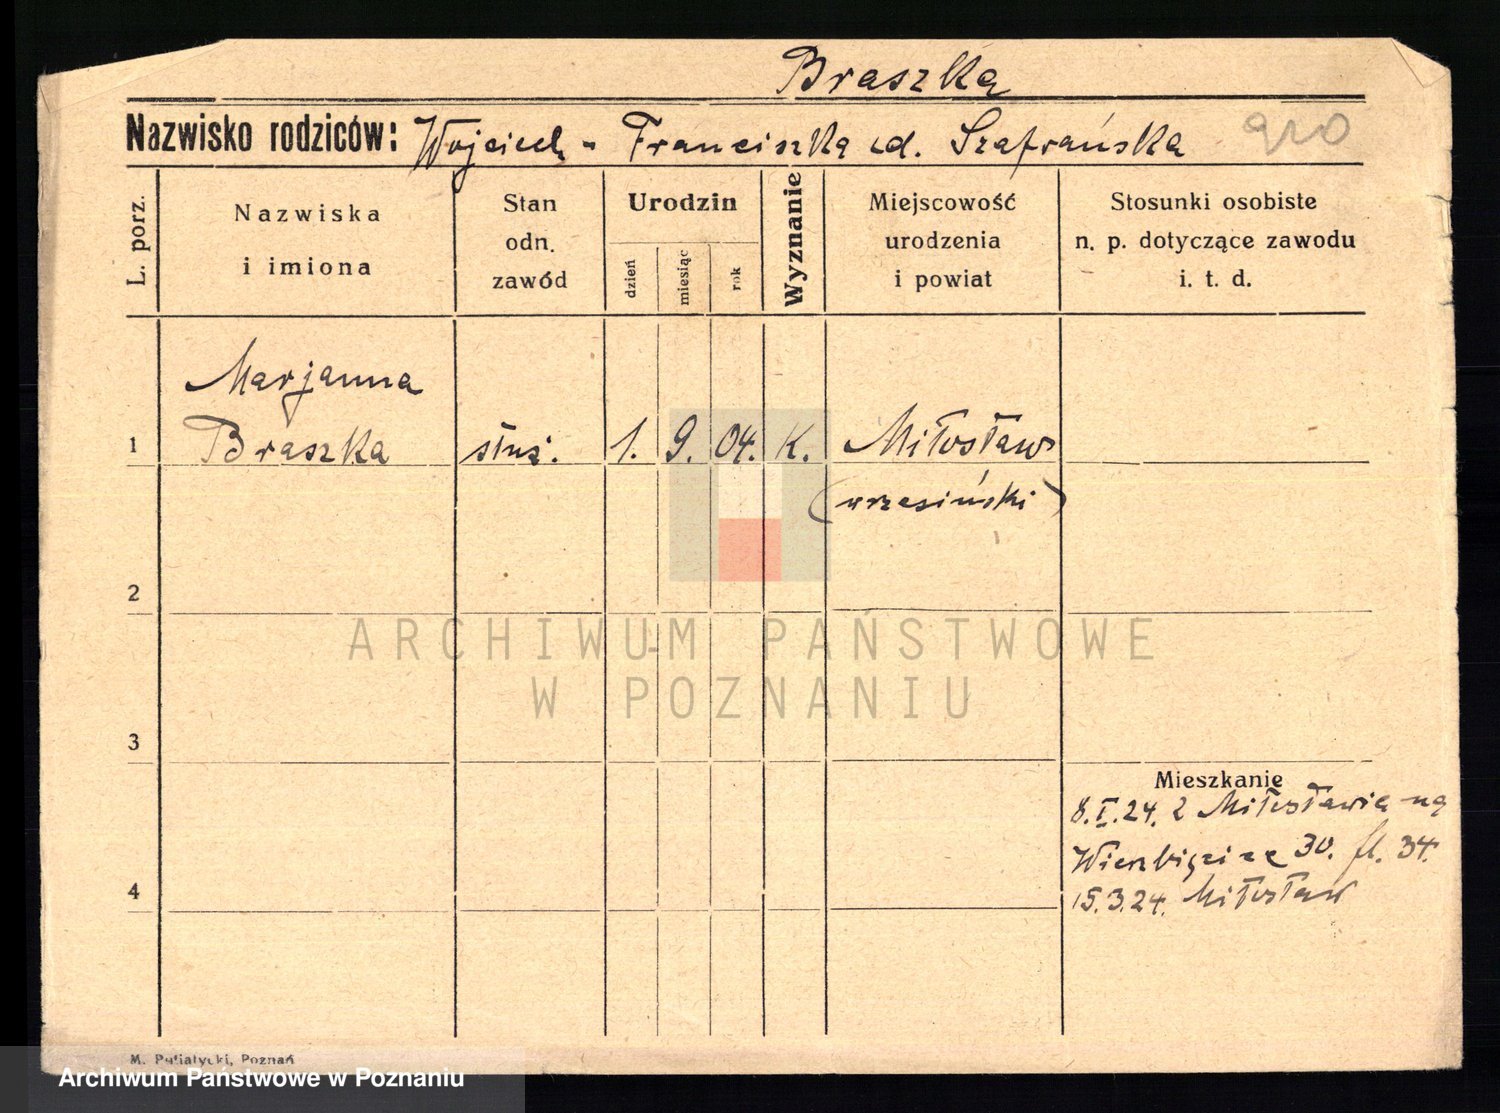 Braszka
Nazwisko rodziców: Wojciech - Franciszka zd. Szafrańska 920
L. porz.
Nazwiska
i imiona
Stan
odn.
zawód
Urodzin
dzień
miesiąc
rok
Wyznanie
Miejscowość
urodzenia
i powiat
Stosunki osobiste
n. p. dotyczące zawodu
i. t. d.
Marjanna
1 Braszka służ. 1. 9. 04. K. Miłosław
(wrzesiński)
2
ARCHIWUM PAŃSTWOWE
W POZNANIU
3
Mieszkanie
8.I.24. z Miłosławia na
30. 34.
4
15.3.24. Miłosław
M. Putiatycki, Poznań
Archiwum Państwowe w Poznaniu